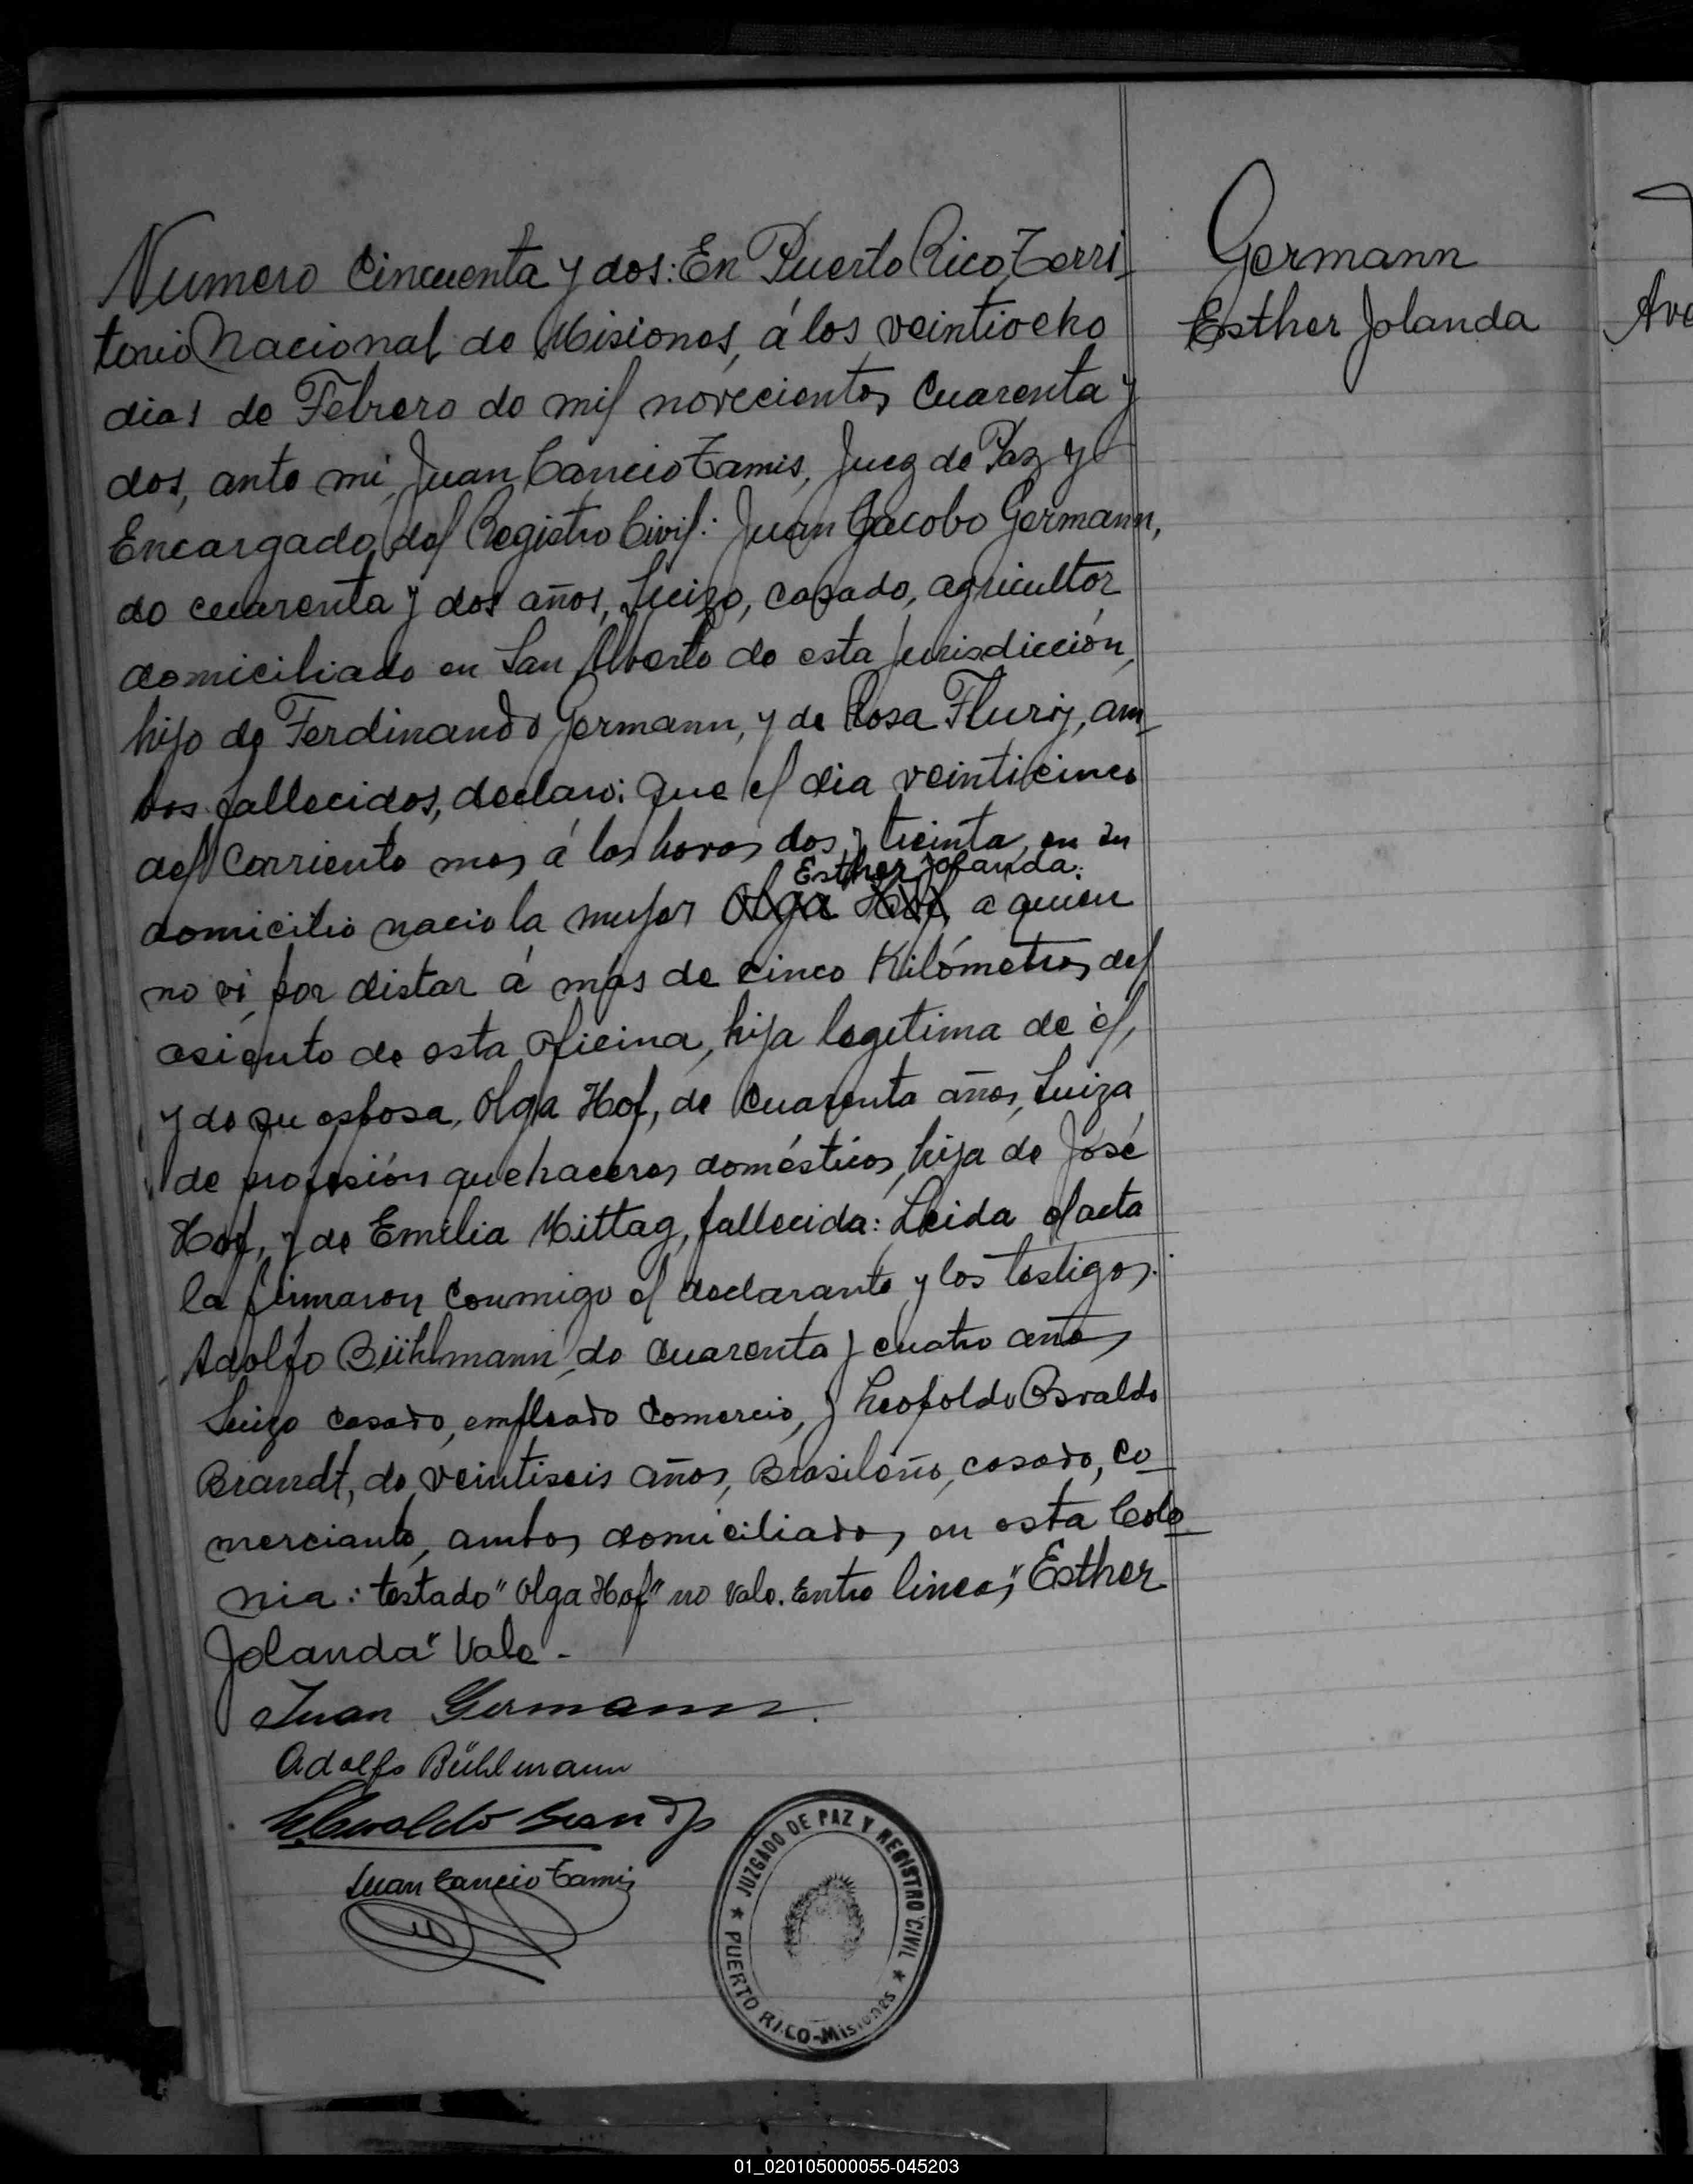 Numero Cincuenta y dos: En Puerto Rico, Terri-
torio Nacional de Misiones, á los veintiocho
dias de Febrero de mil novecientos Cuarenta y
dos, ante mi, Juan Cancio Tamis, Juez de Paz y
Encargado del Registro Civil: Juan Jacobo Germann,
de cuarenta y dos años, Suizo, casado, agricultor
domiciliado en San Alberto de esta jurisdicción,
hijo de Ferdinando Germann, y de Rosa Flurij, am-
bos fallecidos, declaró: que el dia veinticinco
del Corriente mes á las horas dos y treinta, en su
Esther Jolanda:
domicilio nacio la mujer Olga Hof, a quien
no vi por distar á más de cinco Kilómetros del
asiento de esta oficina, hija legitima de él,
y de su esposa, Olga Hof, de Cuarenta años, Suiza
de profesión quehaceres domésticos, hija de José
Hof, y de Emilia Mittag, fallecida: Leida el acta
la firmaron conmigo el declarante y los testigos.
Adolfo Bühlmann, de Cuarenta y cuatro años
Suizo casado, empleado Comercio, y Leopoldo Osvaldo
Brandt, de veintiseis años, Brasileño, casado, co-
merciante, ambos domiciliados en esta Colo-
nia: testado "Olga Hof" no vale. Entre lineas, "Esther
Jolanda" Vale -
Juan Germann.
Adolfo Bühlmann
Juan Cancio Tamis
JUZGADO DE PAZ Y REGISTRO CIVIL
PUERTO RICO-Misiones
Germann
Esther Jolanda
Ave
01_020105000055-045203